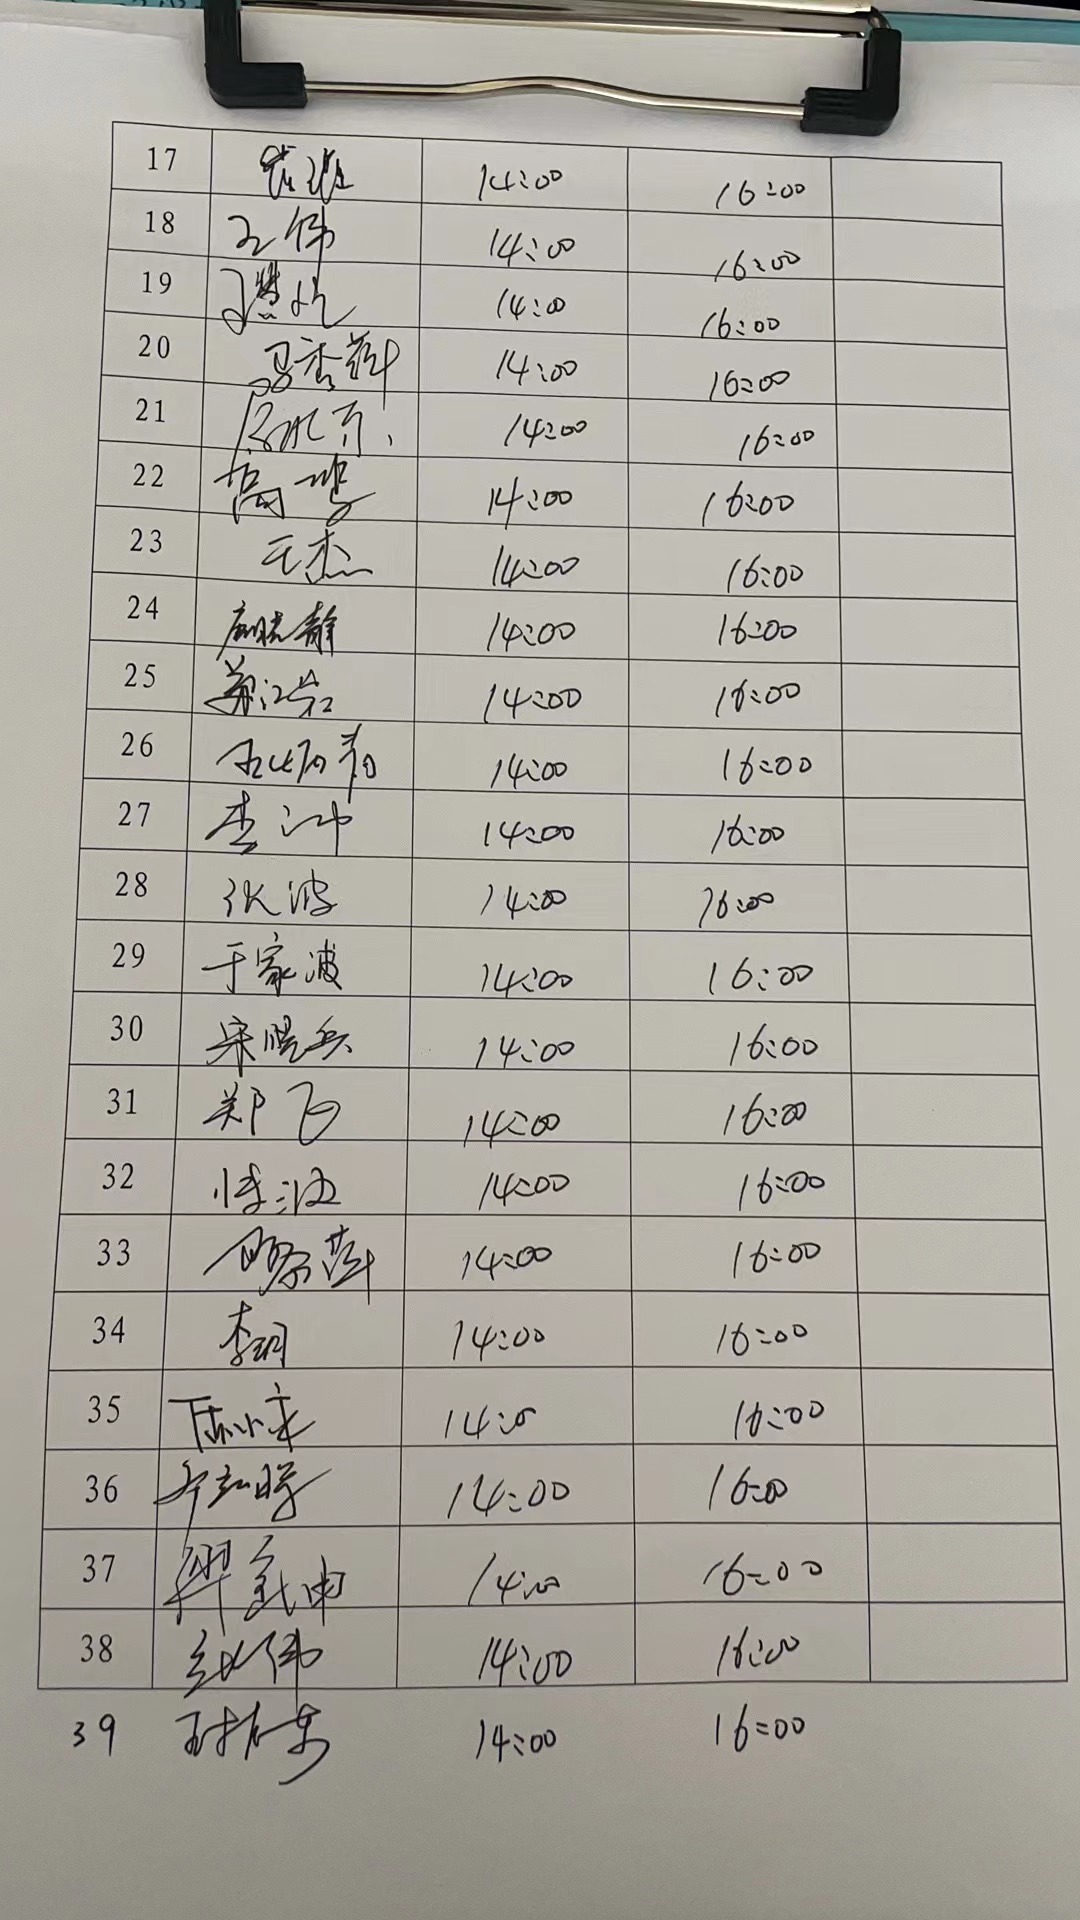 17 14:00 16:00
18 王伟 14:00 16:00
19 14:00 16:00
20 马秀萍 14:00 16:00
21 14:00 16:00
22 14:00 16:00
23 王杰 14:00 16:00
24 14:00 16:00
25 14:00 16:00
26 14:00 16:00
27 李冲 14:00 16:00
28 张波 14:00 16:00
29 于家波 14:00 16:00
30 宋晓兵 14:00 16:00
31 郑飞 14:00 16:00
32 14:00 16:00
33 14:00 16:00
34 李玥 14:00 16:00
35 14:0 16:00
36 14:00 16:00
37 14:00 16:00
38 赵伟 14:00 16:00
39 14:00 16:00